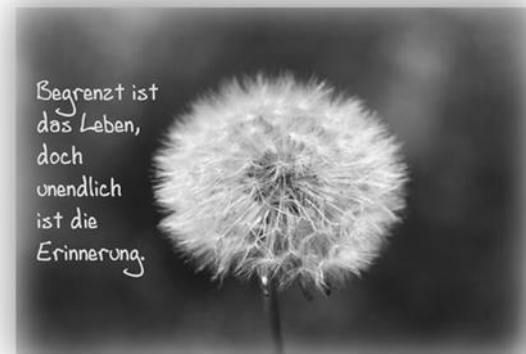 Begrenzt ist
das Leben,
doch
unendlich
ist die
Erinnerung.